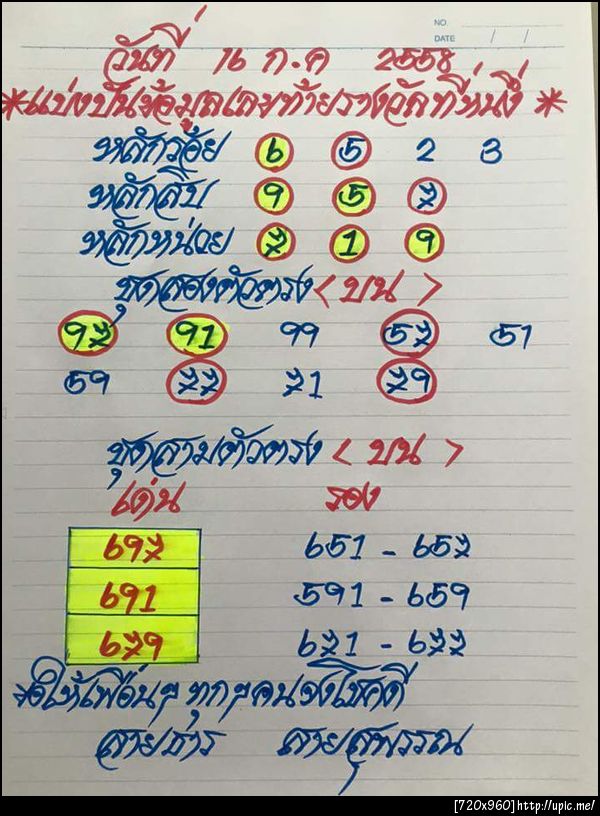 NO.
DATE / /
วันที่ 16 ก.ค 2558
*แบ่งปันข้อมูลเลขท้ายรางวัลที่หนึ่ง*
หลักร้อย 6 5 2 3
หลักสิบ 9 5 7
หลักหน่วย 7 1 9
ชุดสองตัวตรง <บน>
97 91 99 57 51
59 77 71 79
ชุดสามตัวตรง <บน>
เด่น รอง
697 651 - 657
691 591 - 659
679 671 - 677
*ขอให้เพื่อนๆ ทุกๆคนจงโชคดี
สายธาร สายสุพรรณ
[720x960]http://upic.me/